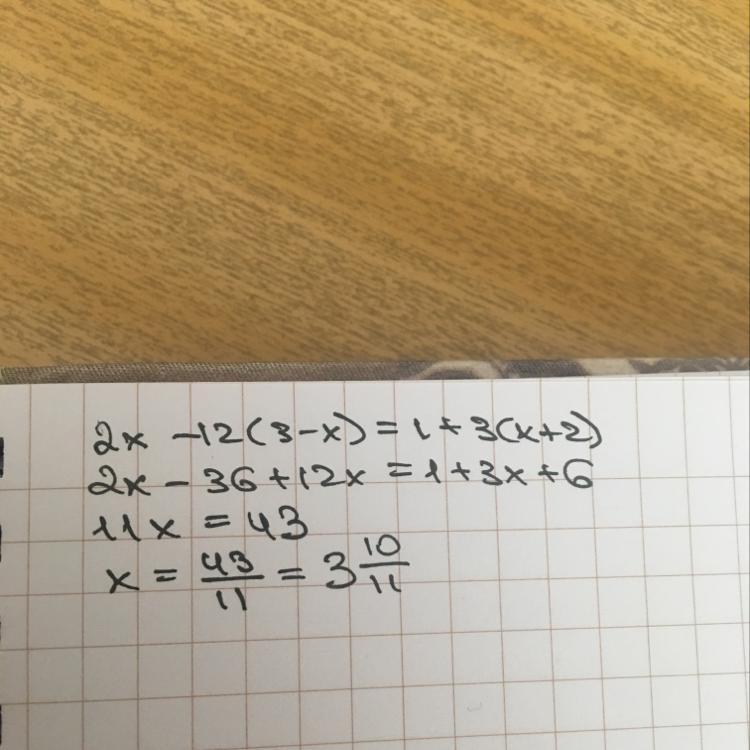 2x - 12(3-x) = 1 + 3(x+2)
2x - 36 + 12x = 1 + 3x + 6
11x = 43
x = 43/11 = 3 10/11